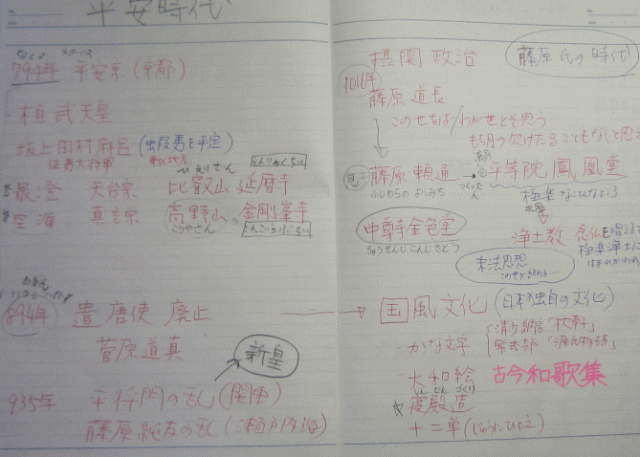 平安時代
794年 平安京(京都)
桓武天皇
坂上田村麻呂
征夷大将軍
最澄 天台宗 比叡山 延暦寺
空海 真言宗 高野山 金剛峯寺
こうやさん
894年 遣唐使 廃止
菅原道真
新皇
935年 平将門の乱(関東)
藤原純友の乱(瀬戸内海)
摂関政治 藤原氏の時代
1016年
藤原道長
このせをば/わがせとぞ思う
もち月の欠けたることもなしと思
藤原頼通 → 平等院鳳凰堂
ふじわらの よりみち
中尊寺金色堂
ちゅうそんじこんじきどう
浄土教 念仏を唱え
極楽浄土に
末法思想
国風文化 (日本独自の文化)
かな文字 清少納言「枕草子」
紫式部「源氏物語」
大和絵 古今和歌集
しんでんづくり
寝殿造
十二単(じゅうにひとえ)